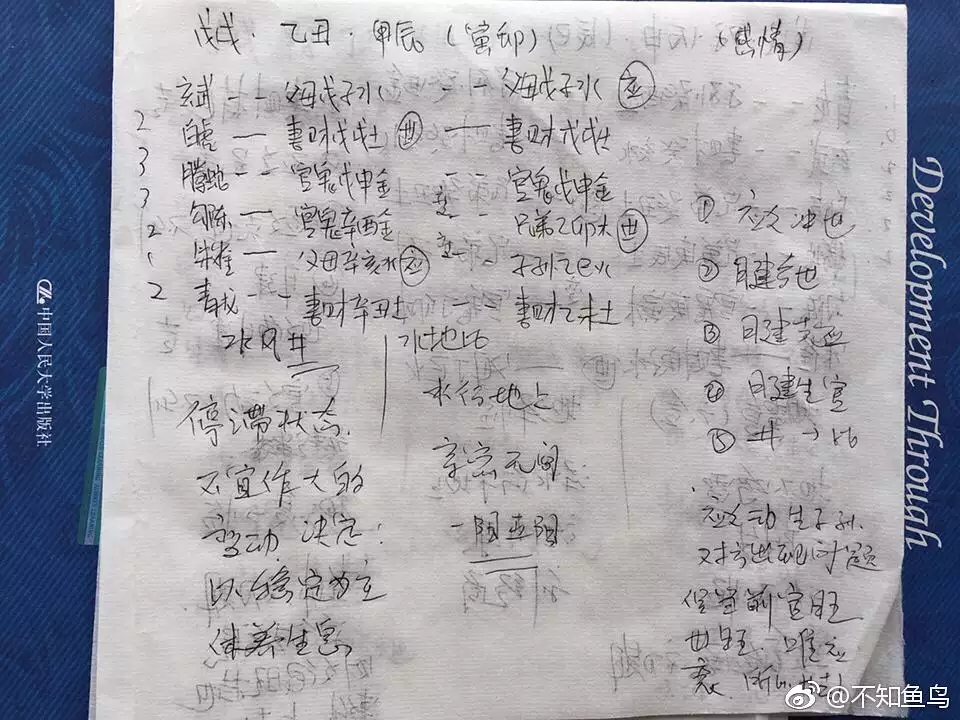 戊戌．乙丑．甲辰（寅卯）（感情）
玄武 -- 父母戊子水 -- 父母戊子水 应
2 白虎 — 妻财戊戌土 世 — 妻财戊戌土
3 腾蛇 -- 官鬼戊申金 -- 官鬼戊申金
3 勾陈 — 官鬼辛酉金 -- 兄弟乙卯木 世
2 朱雀 — 父母辛亥水 应 -- 子孙乙巳火
2 青龙 -- 妻财辛丑土 妻财乙未土
水风井
水地比
停滞状态
不宜作大的
变动 决定：
以稳定为主
休养生息
水行地上
亲密无间
一阳五阴
① 应爻冲世
② 日建合世
③ 月建克应
④ 月建生官
⑤ 井→比
应爻动
对方出现问题
世旺．唯应
衰．
中国人民大学出版社
Development Through
@不知鱼鸟